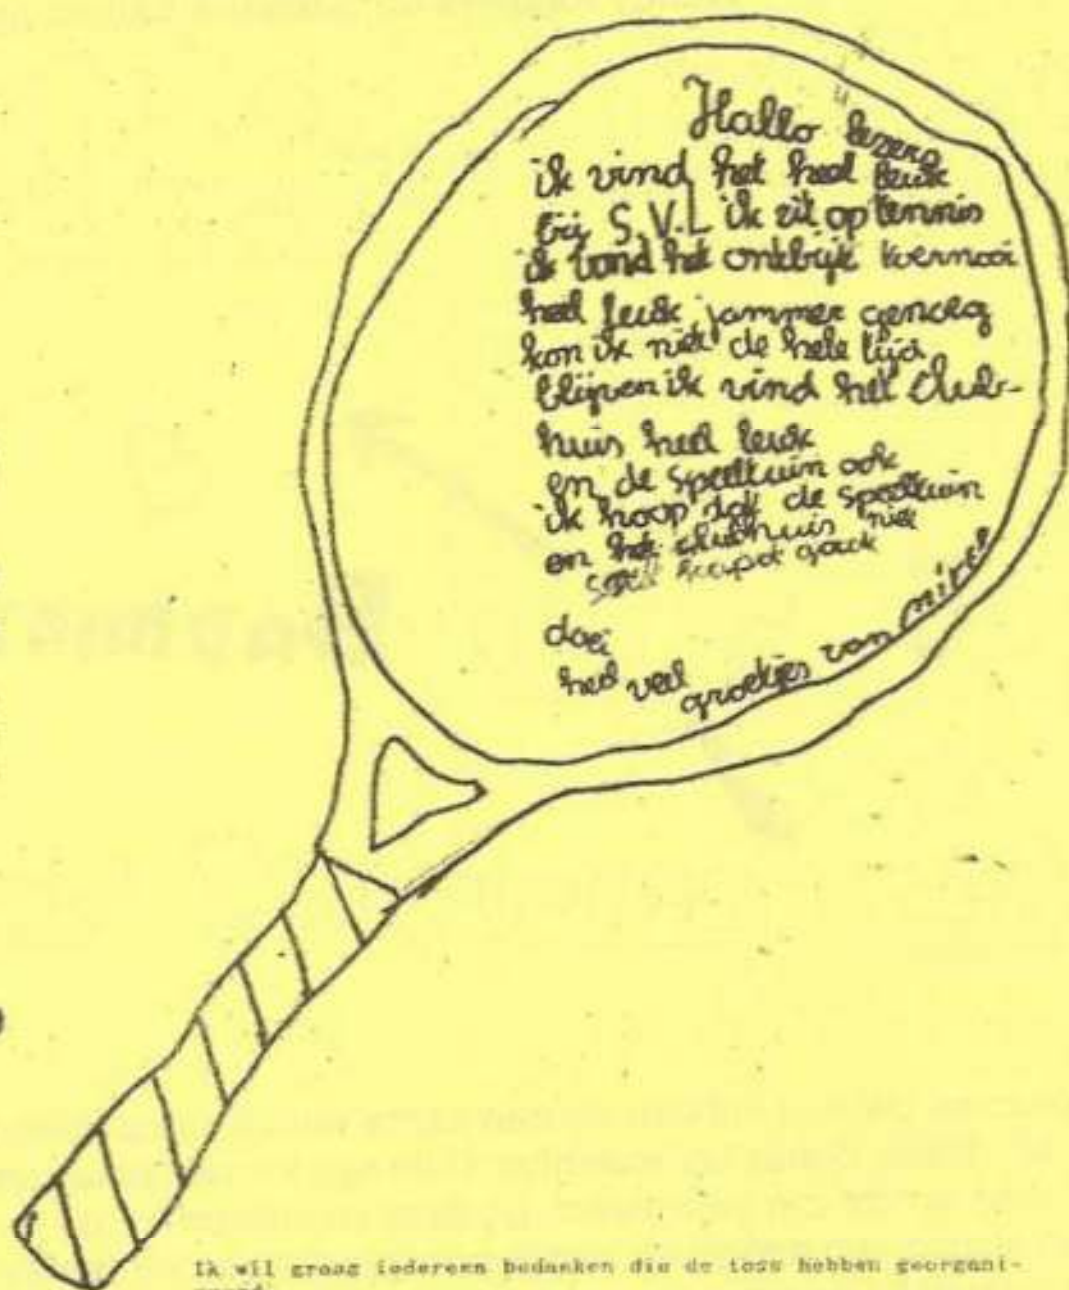 Hallo lezers
ik vind het heel leuk
bij S.V.L ik zit op tennis
ik vond het ontbijt toernooi
heel leuk jammer genoeg
kon ik niet de hele tijd
blijven ik vind het club-
huis heel leuk
en de speeltuin ook
ik hoop dat de speeltuin
en het clubhuis niet
gaat
doei
heel veel groetjes van
Ik wil graag iedereen bedanken die de toss hebben georgani-